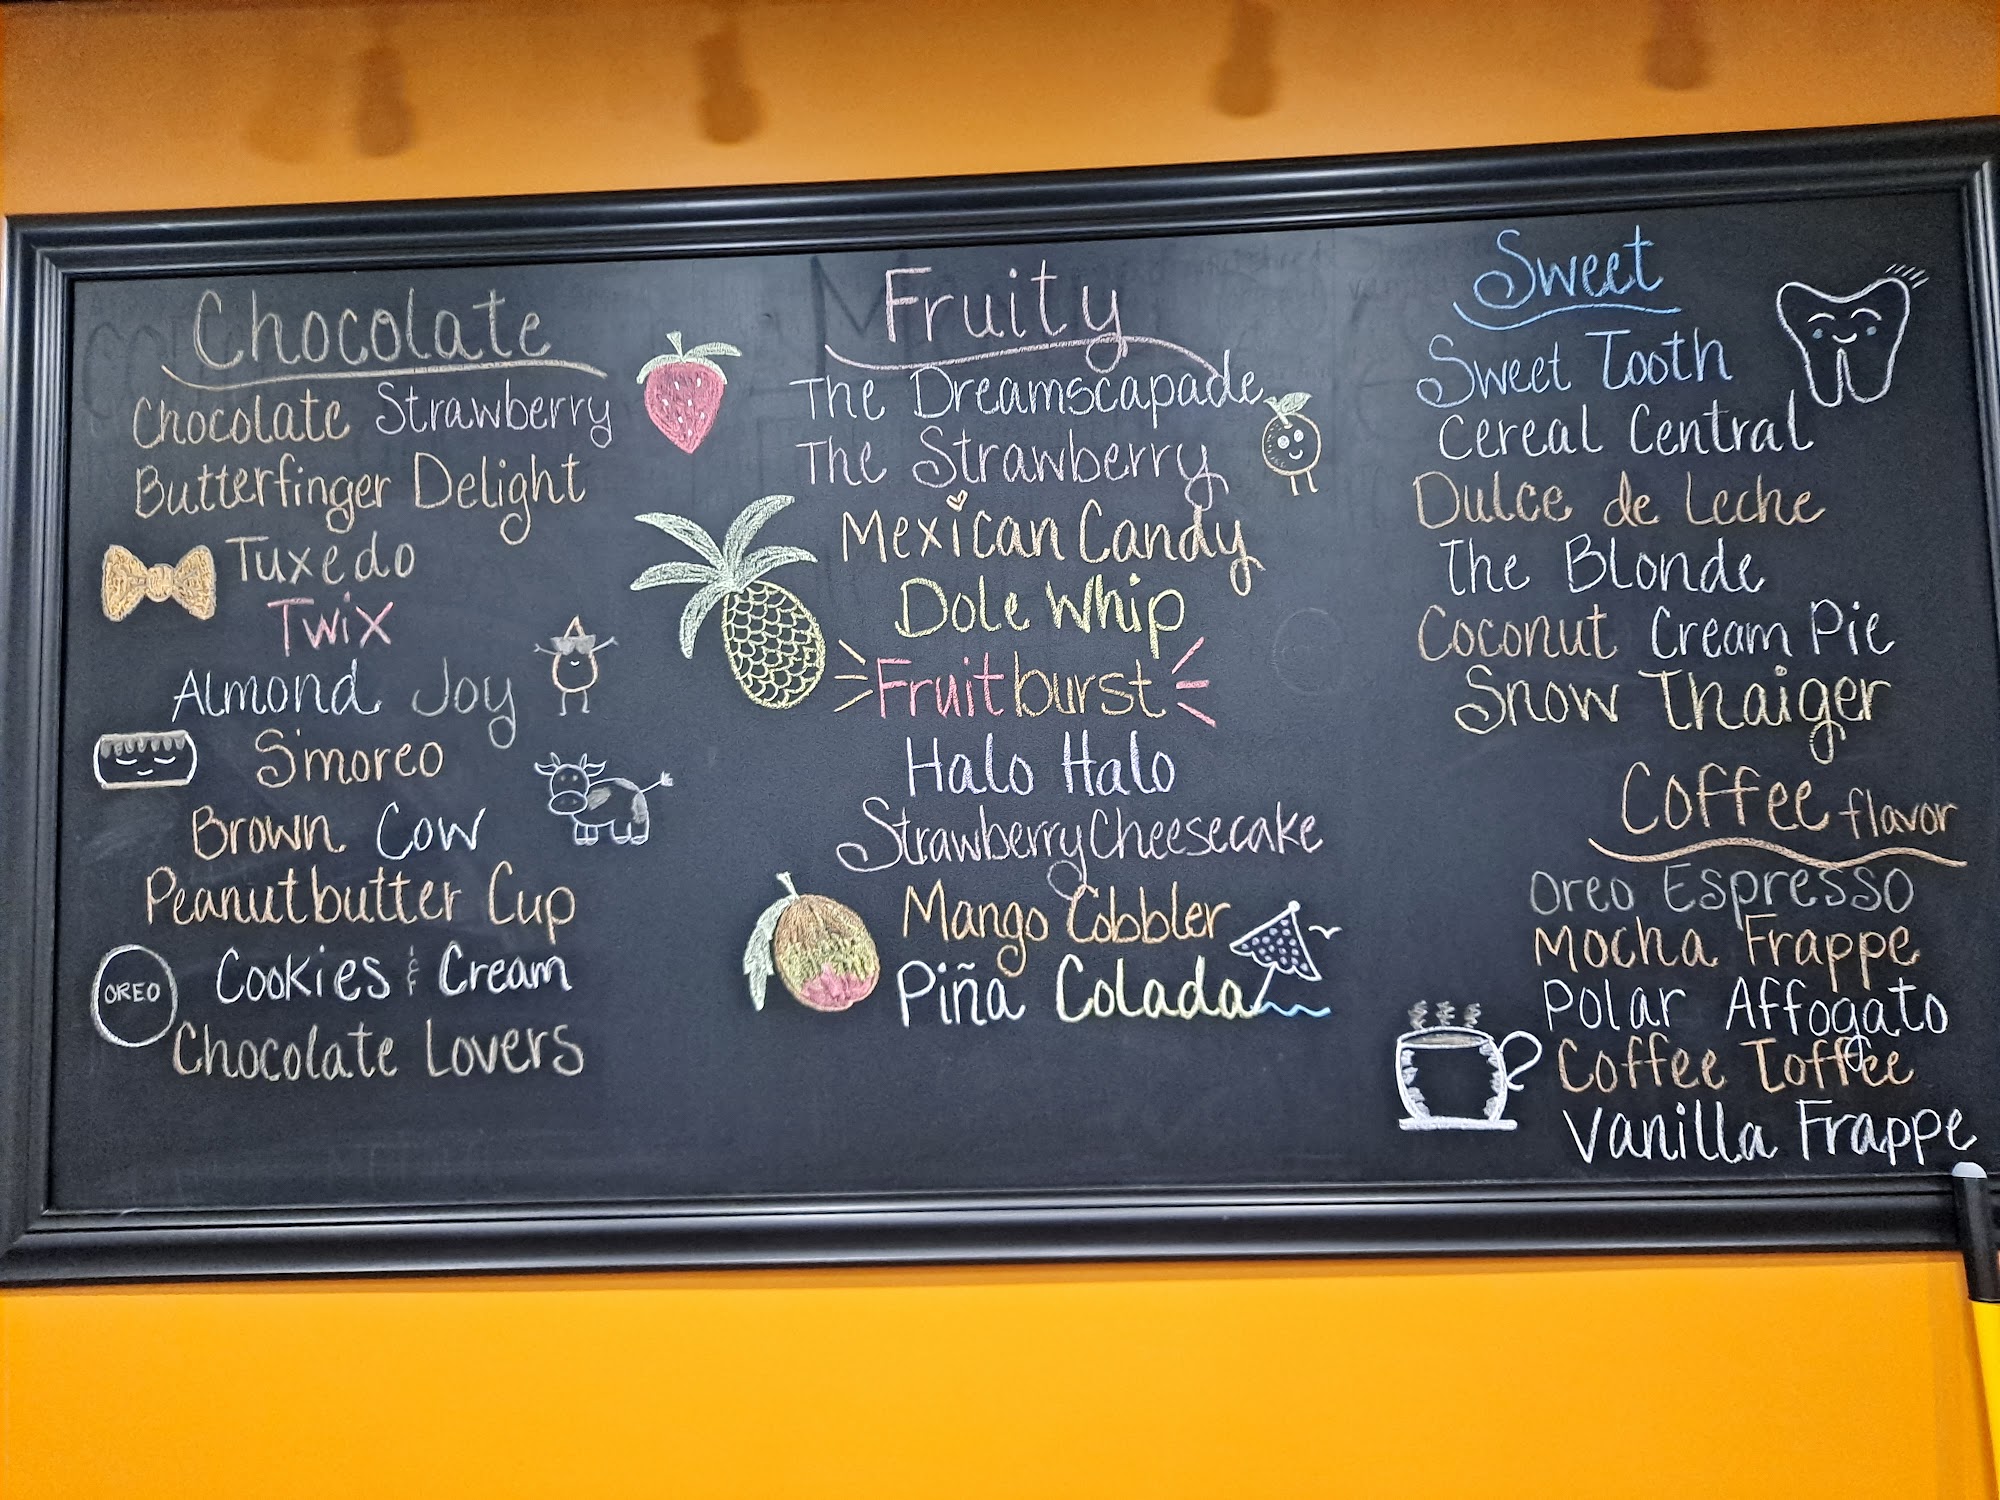 Chocolate
Chocolate Strawberry
Butterfinger Delight
Tuxedo
Twix
Almond Joy
S'moreo
Brown Cow
Peanutbutter Cup
Cookies & Cream
OREO
Chocolate Lovers
Fruity
The Dreamscapade
The Strawberry
Mexican Candy
Dole Whip
Fruitburst
Halo Halo
Strawberry Cheesecake
Mango Cobbler
Piña Colada
Sweet
Sweet Tooth
Cereal Central
Dulce de Leche
The Blonde
Coconut Cream Pie
Snow Thaiger
Coffee flavor
Oreo Espresso
Mocha Frappe
Polar Affogato
Coffee Toffee
Vanilla Frappe